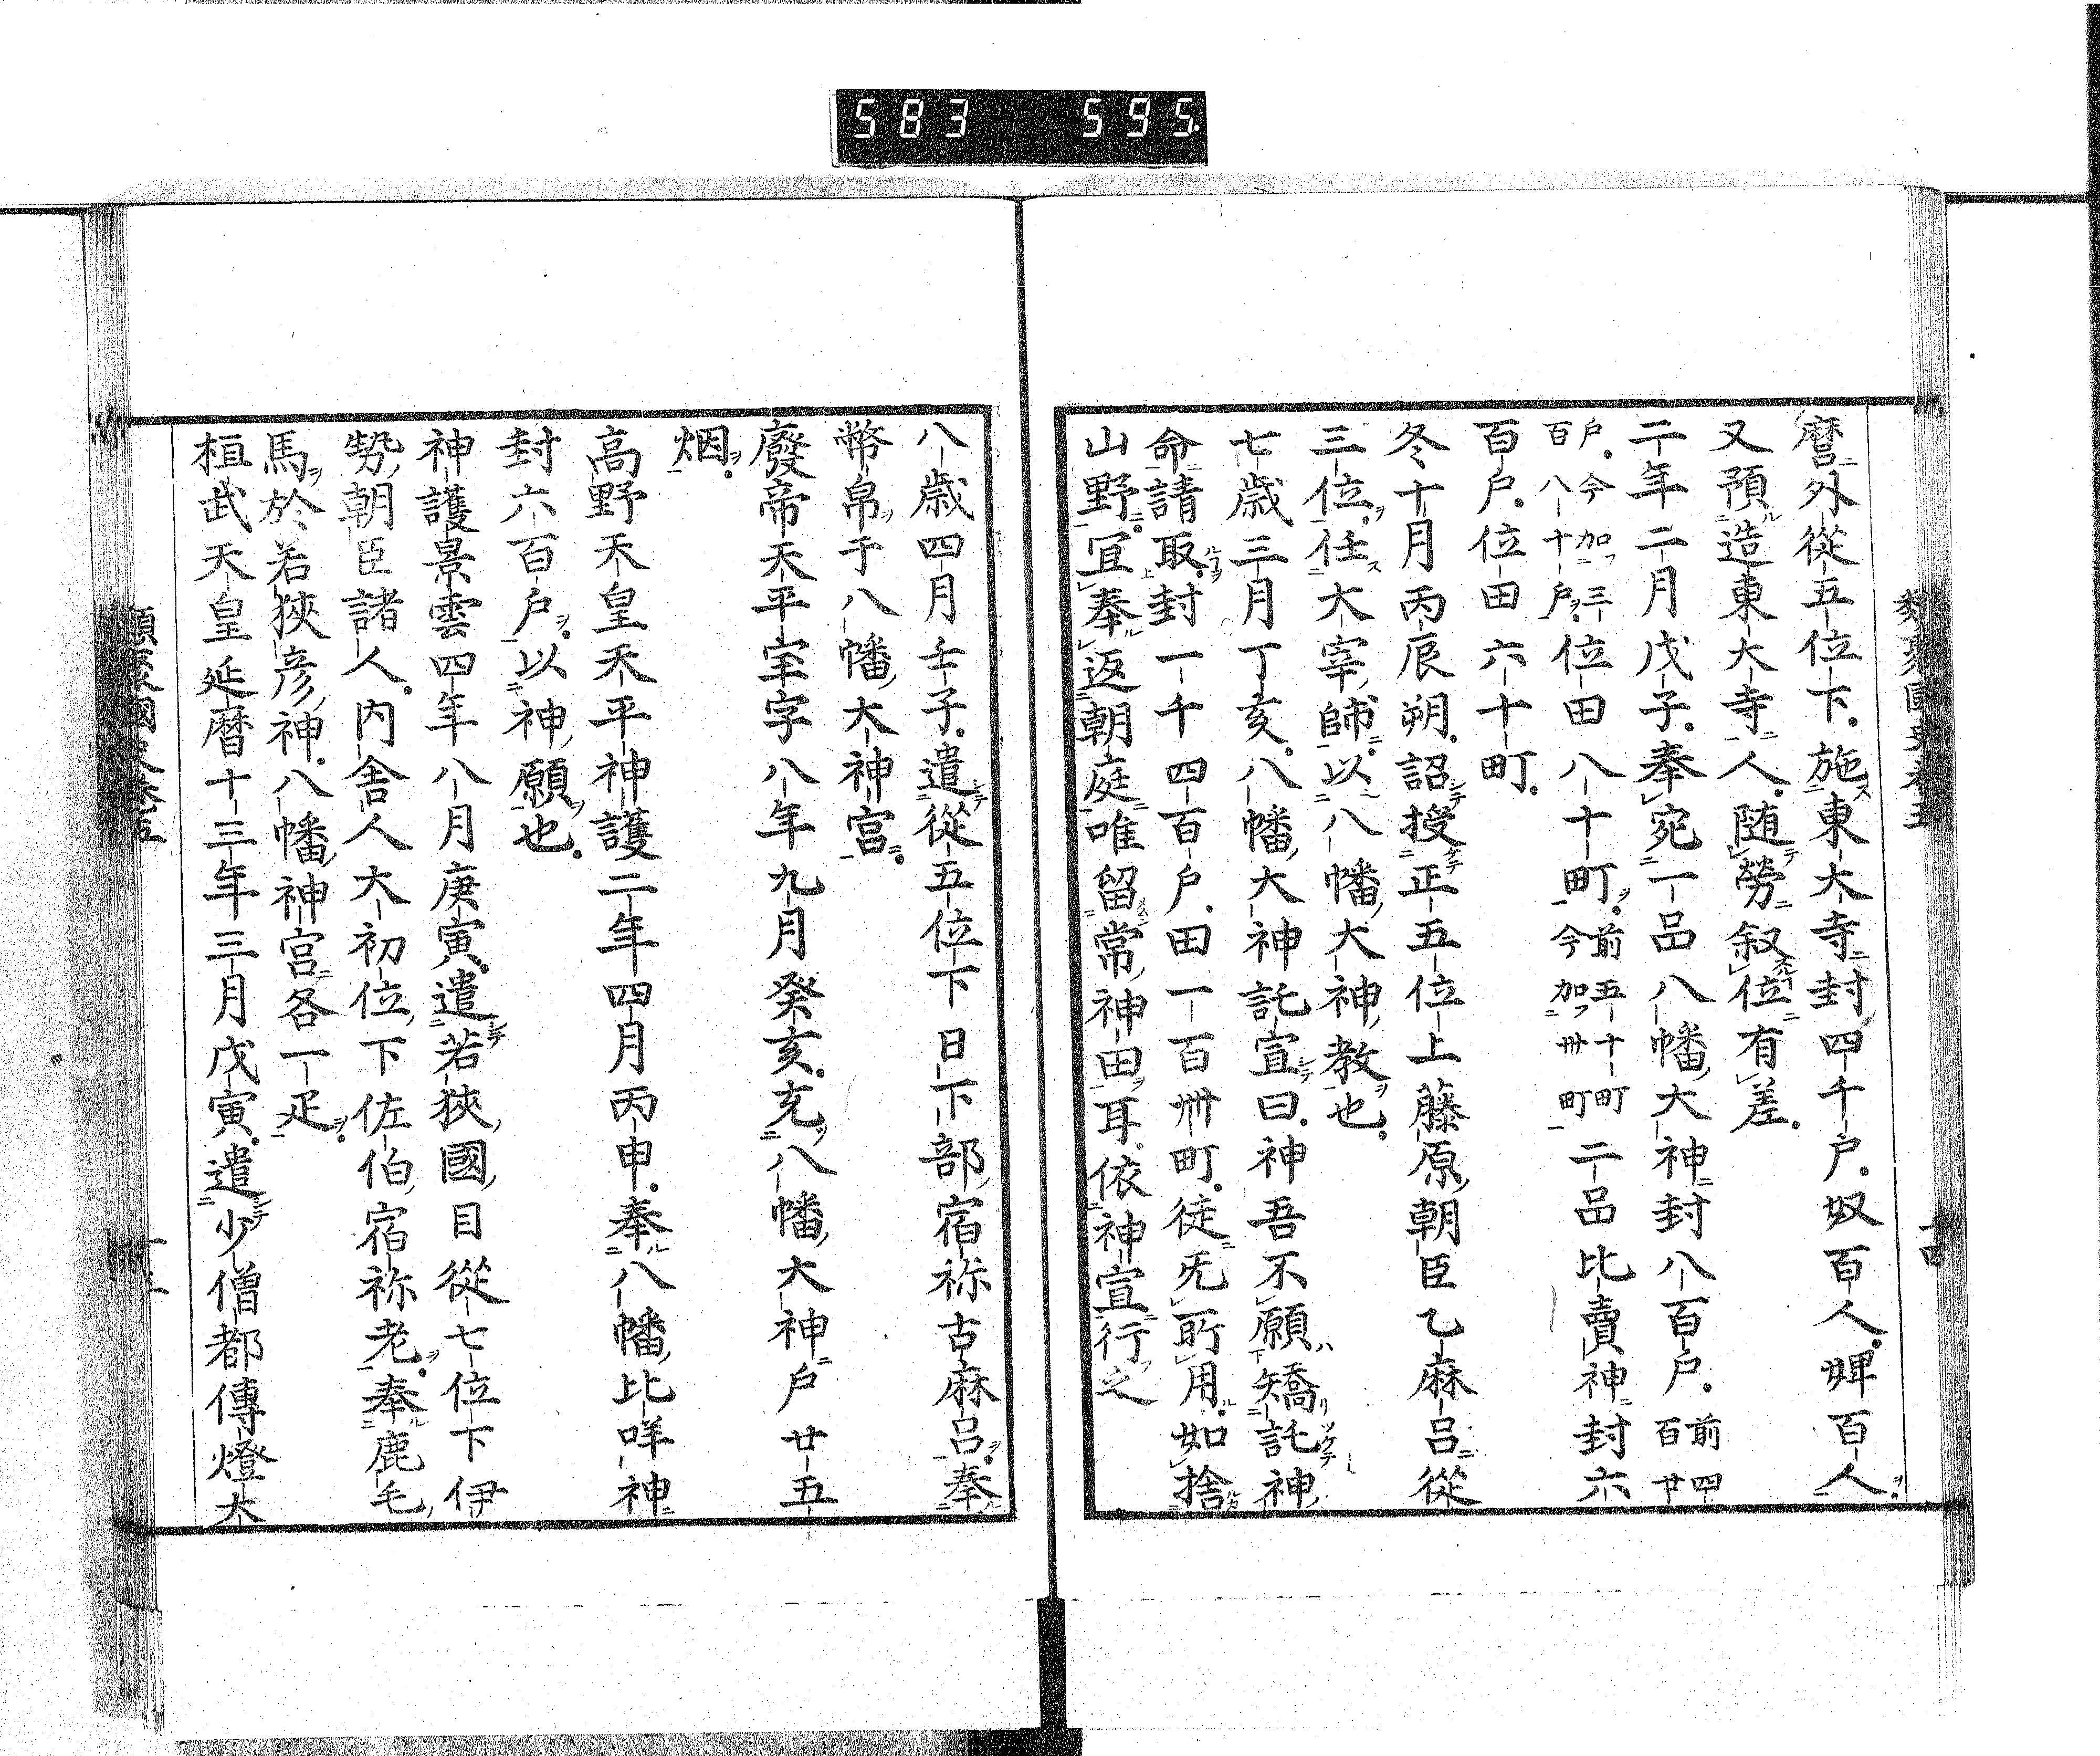 583 595.
類聚國史卷五
十四
麿外從五位下。施東大寺封四千戸。奴百人。婢百人。
又預造東大寺人。随勞叙位有差。
二年二月戊子。奉宛一品八幡大神封八百戸。前四百廿
戸。今加三百八十戸。位田八十町。前五十町今加卅町二品比賣神封六
百戸。位田六十町。
冬十月丙辰朔。詔授正五位上藤原朝臣乙麻呂從
三位。任大宰帥。以八幡大神教也。
七歳三月丁亥。八幡大神託宣曰。神吾不願矯託神
命請取。封一千四百戸。田一百卌町。徒旡所用。如捨
山野。宜奉返朝庭唯留常神田耳。依神宣行之
八歳四月壬子。遣從五位下日下部宿祢古麻呂。奉
幣帛于八幡大神宮。
廢帝天平宝字八年九月癸亥。充八幡大神戸廿五
烟。
高野天皇天平神護二年四月丙申。奉八幡比咩神
封六百戸。以神願也。
神護景雲四年八月庚寅。遣若狹國目從七位下伊
勢朝臣諸人。内舎人大初位下佐伯宿祢老。奉鹿毛
馬於若狹彦神。八幡神宮各一疋。
桓武天皇延暦十三年三月戊寅。遣少僧都傳燈大
類聚國史卷五